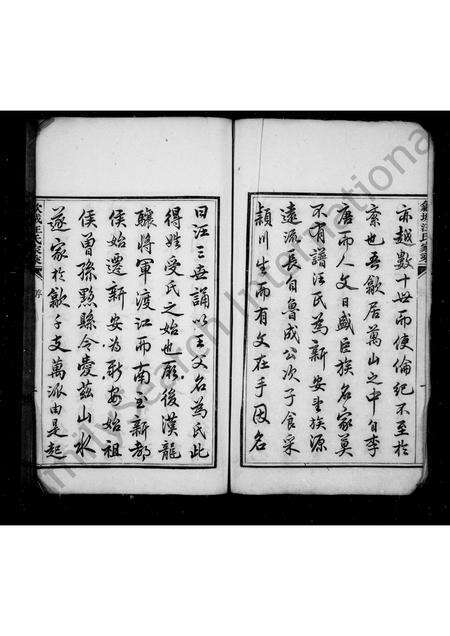 亦越數十世而使倫紀不至於
紊也吾歙居萬山之中自李
唐而人文日盛臣族名家莫
不有譜汪氏為新安望族源
遠流長自魯成公次子食采
潁川生而有文在手因名
曰汪三世誦以王父名為氏此
得姓受氏之始也厥後漢龍
驤將軍渡江而南至新都
侯始遷新安為新安始祖
侯曾孫黟縣令愛茲山水
遂家於歙千支萬派由是起
汪氏家乘
序
FamilySearch International